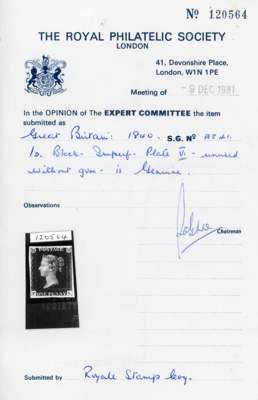 Nº 120564
THE ROYAL PHILATELIC SOCIETY
LONDON
41, Devonshire Place,
London, W1N 1PE
Meeting of -9 DEC 1981
In the OPINION of The EXPERT COMMITTEE the item
submitted as
Great Britain: 1840. S.G. Nº AS 41.
1d. Black. Imperf. Plate VI - unused
without gum - is Genuine.
Observations
Chairman
120564
POSTAGE
Submitted by Royale Stamp Coy.